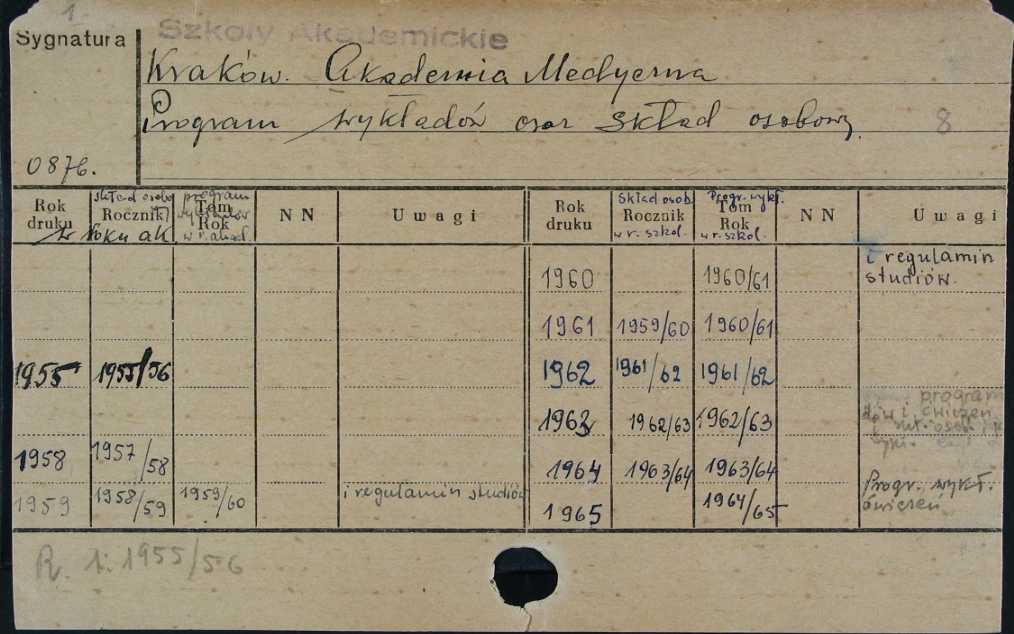 1.
Szkoły Akademickie
Sygnatura
Kraków. Akademia Medyczna
Program wykładów oraz skład osobowy.
8
0876.
Rok druku
skład osobo
Rocznik
w roku ak
program
wykładów
Tom
Rok
w r. akad.
N N
Uwagi
Rok druku
Skład osob.
Rocznik
w r. szkol.
Progr. wykł.
Tom
Rok
w r. szkol.
N N
Uwagi
1955 1955/56
1958 1957/58
1959 1958/59 1959/60 i regulamin studiów
1960 1960/61 i regulamin
studiów.
1961 1959/60 1960/61
1962 1961/62 1961/62
1963 1962/63 1962/63
program
ćwiczeń
1964 1963/64 1963/64
1965 1964/65 Progr. wykł.
ćwiczeń
R. 1: 1955/56